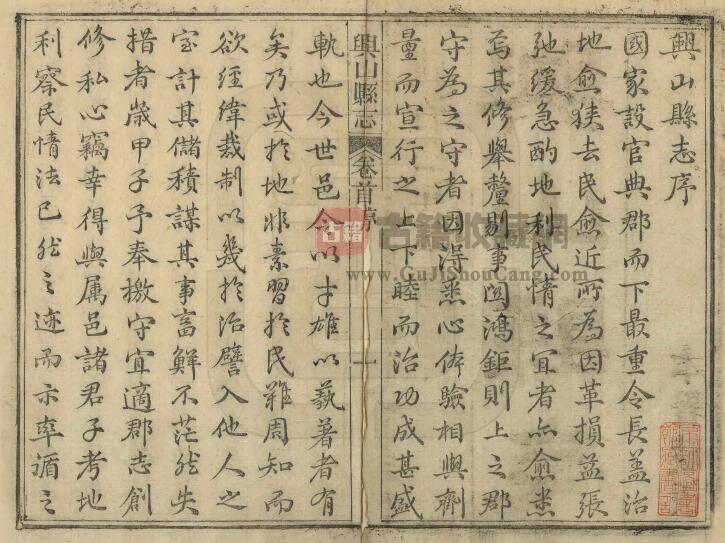 興山縣志序
國家設官典郡而下最重令長蓋治
地愈狹去民愈近所為因革損益張
弛緩急酌地利民情之宜者亦愈悉
焉其修舉釐剔事関鴻鉅則上之郡
守為之守者因得悉心体驗相與劑
量而宣行之上下睦而治功成甚盛
興山縣志 卷首序 一
軌也今世邑令以才雄以蓺著者有
矣乃或於地非素習於民難周知而
欲經緯裁制以幾於治譬入他人之
室計其儲積謀其事畜鮮不茫然失
措者歲甲子予奉檄守宜適郡志創
修私心竊幸得與属邑諸君子考地
利察民情法已然之迹而示率循之
古籍
古籍收藏網
www.GuJiShouCang.com